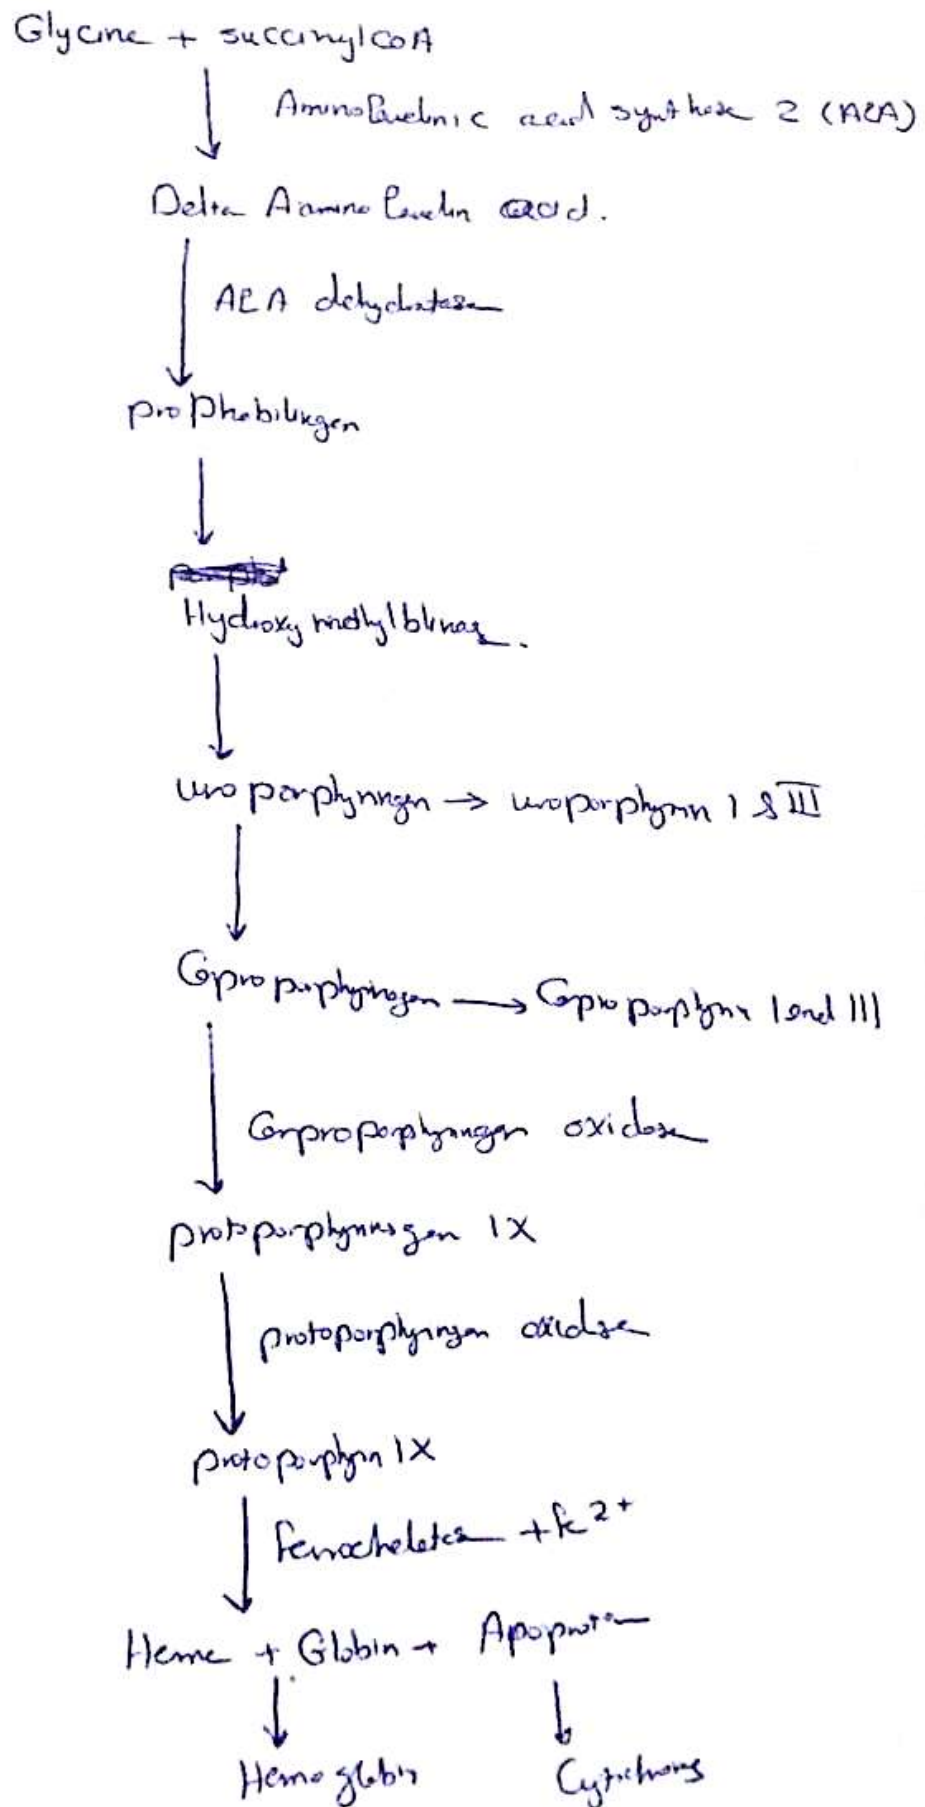 Glycine + succinylcoA
Aminolevelinic acid synthase 2 (ALA)
Delta Aamino levelin acid.
ALA dehydratase
proPhobilingen
Hydroxy methylbilnae.
uroporphyringen → uroporphyrin I & III
Coproporphyrinogen → Coproporphyrin I and III
Corproporphyringen oxidase
protoporphyrinogen IX
protoporphyringen oxidase
protoporphyrin IX
Ferrochelatase + Fe2+
Heme + Globin + Apoprotein
Hemoglobin Cytochroms